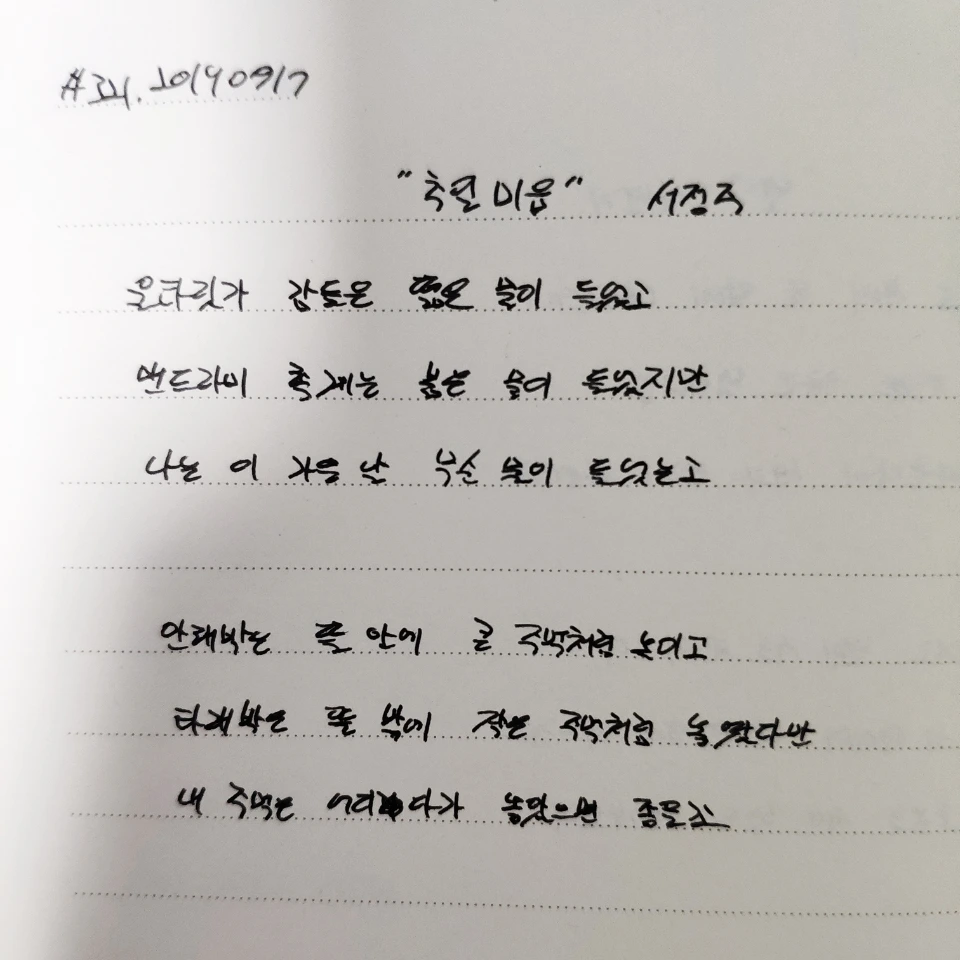 #132. 20190917
"추일 미음" 서정주
울타릿가 감들은 떫은 물이 들었고
맨드라미 촉계는 붉은 물이 들었지만
나는 이 가을날 무슨 물이 들었는고
안해박은 뜰 안에 큰 주먹처럼 놓이고
타래박은 뜰 밖에 작은 주먹처럼 놓였다만
내 주먹은 어디다가 놓았으면 좋을꼬